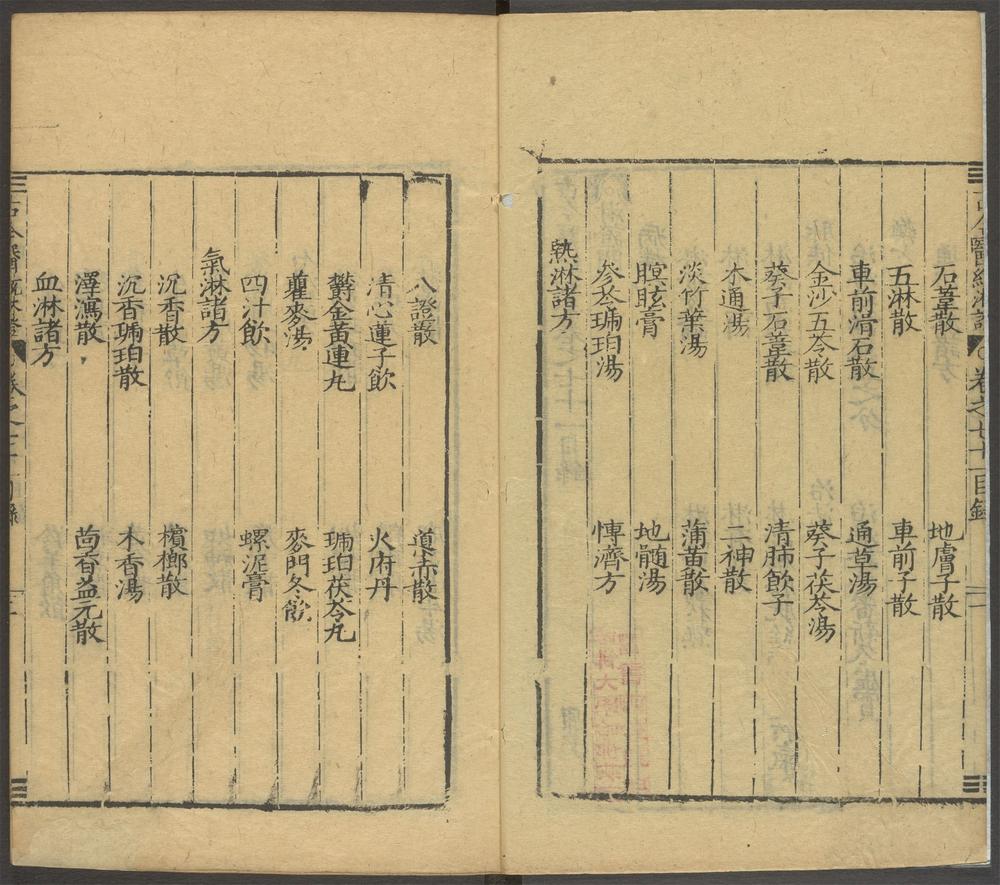 石葦散 地膚子散
五淋散 車前子散
車前滑石散 通草湯
金沙五苓散 葵子茯苓湯
葵子石葦散 清肺飲子
木通湯 二神散
淡竹葉湯 蒲黃散
瞑眩膏 地髓湯
參苓琥珀湯 慱濟方
熱淋諸方
八證散 導赤散
清心蓮子飲 火府丹
欝金黃連丸 琥珀茯苓丸
瞿麥湯 麥門冬飲
四汁飲 螺泥膏
氣淋諸方
沉香散 檳榔散
沉香琥珀散 木香湯
澤瀉散 茴香益元散
血淋諸方